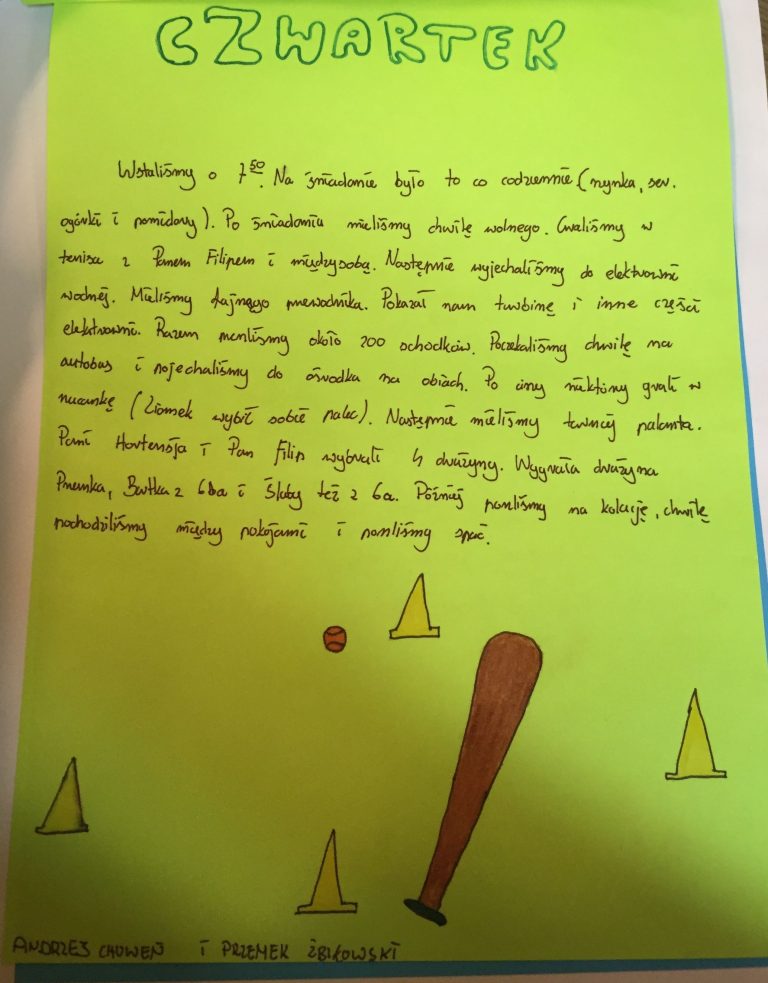 CZWARTEK
Wstaliśmy o 7⁵⁰. Na śniadanie było to co codziennie (szynka, ser,
ogórki i pomidory). Po śniadaniu mieliśmy chwilę wolnego. Graliśmy w
tenisa z Panem Filipem i między sobą. Następnie wyjechaliśmy do elektrowni
wodnej. Mieliśmy fajnego przewodnika. Pokazał nam turbinę i inne części
elektrowni. Razem przeszliśmy około 200 schodków. Poczekaliśmy chwilę na
autobus i pojechaliśmy do ośrodka na obiach. Po ciszy niektórzy grali w
ruszankę (Ziomek wybił sobie palec). Następnie mieliśmy turniej palanta.
Pani Hortensja i Pan Filip wybrali 4 drużyny. Wygrała drużyna
Przemka, Bartka z 6ba i Śruby też z 6a. Później poszliśmy na kolację, chwilę
pochodziliśmy między pokojami i poszliśmy spać.
ANDRZEJ CHOWEŃ I PRZEMEK ŻBIKOWSKI